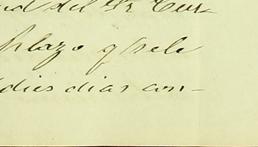 del Sr Cur-
plazo q se le
dies dias con-